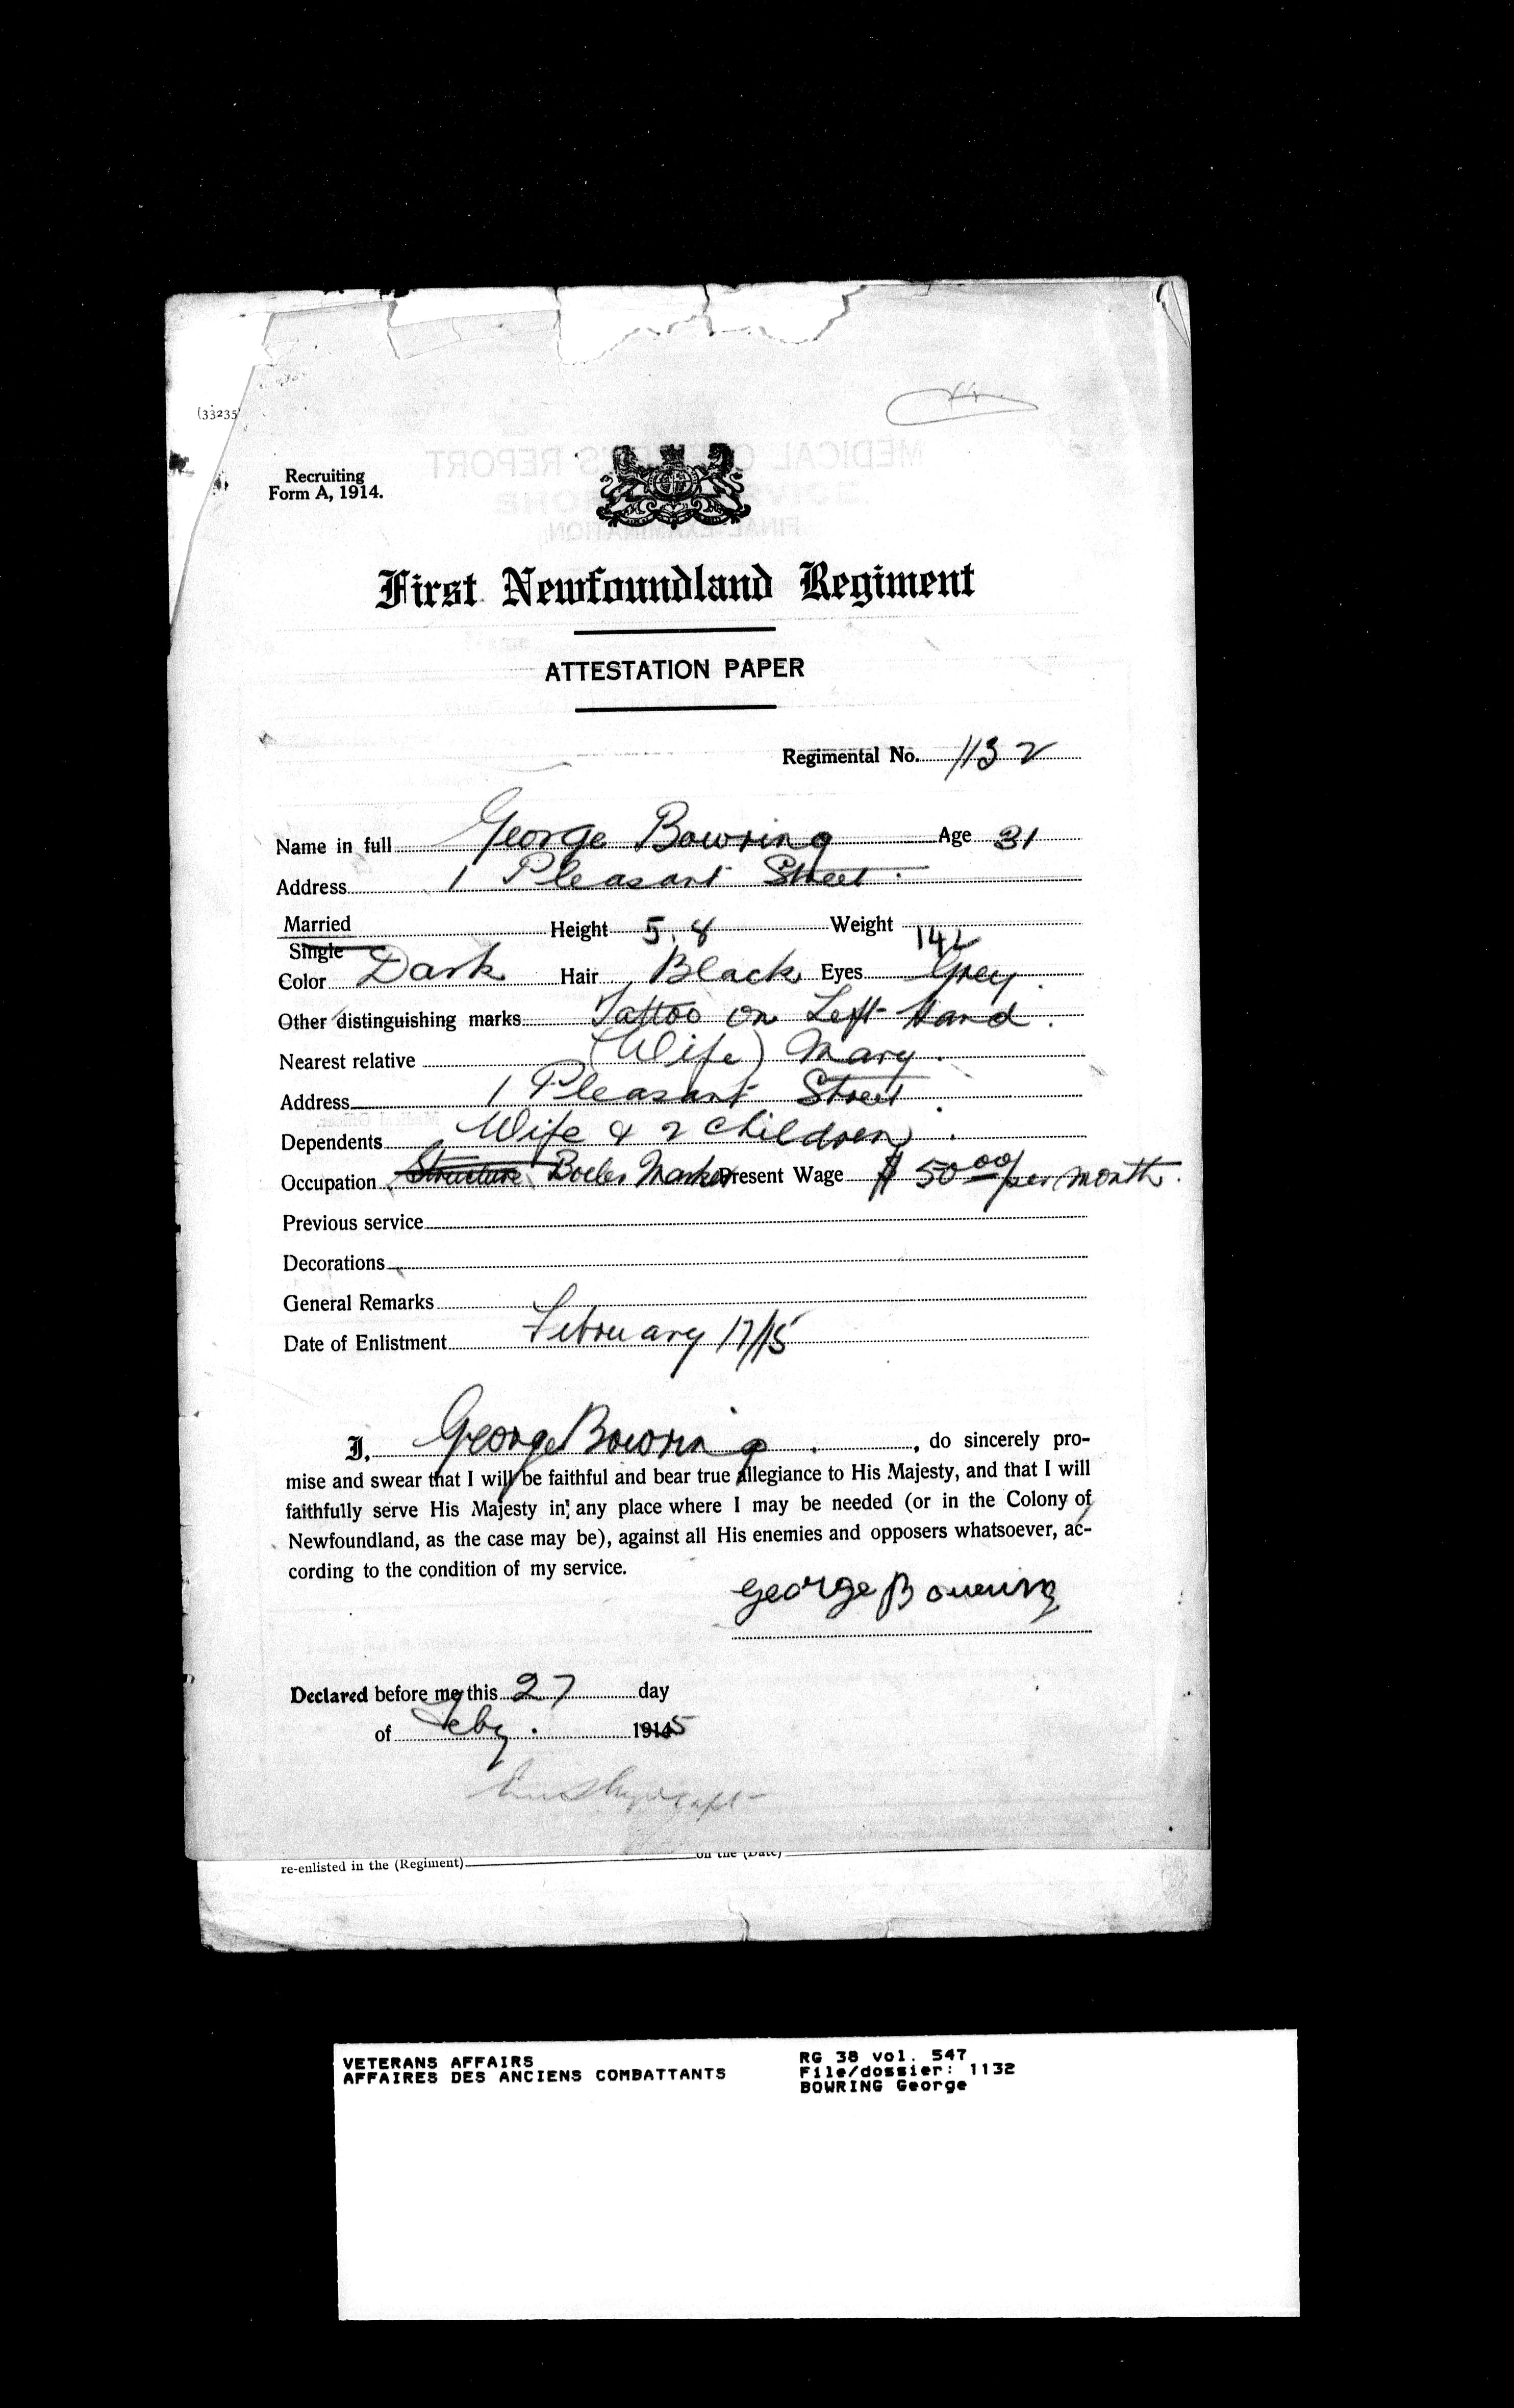 (33235
Recruiting
Form A, 1914.
First Newfoundland Regiment
ATTESTATION PAPER
Regimental No. 1132
Name in full George Bowring Age 31
Address 1 Pleasant Street.
Married
Single
Height 5.8 Weight 142
Color Dark Hair Black Eyes Grey.
Other distinguishing marks Tattoo on Left Hand.
Nearest relative (Wife) Mary.
Address 1 Pleasant Street.
Dependents Wife & 2 children.
Occupation Boiler Maker Present Wage $50.00/per month.
Previous service
Decorations
General Remarks
Date of Enlistment February 17/15
I, George Bowring, do sincerely pro-
mise and swear that I will be faithful and bear true allegiance to His Majesty, and that I will
faithfully serve His Majesty in any place where I may be needed (or in the Colony of
Newfoundland, as the case may be), against all His enemies and opposers whatsoever, ac-
cording to the condition of my service.
George Bowring
Declared before me this 27 day
of Feby. 1915
re-enlisted in the (Regiment) on the (Date)
VETERANS AFFAIRS
AFFAIRES DES ANCIENS COMBATTANTS
RG 38 vol. 547
File/dossier: 1132
BOWRING George